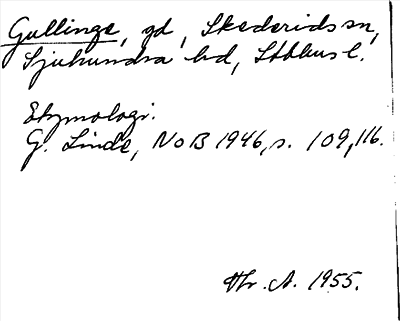 Gullinge, gd, Skederids sn,
Sjuhundra hd, Sthlms l.
Etymologi.
G. Linde, NoB 1946, s. 109, 116.
A. 1955.